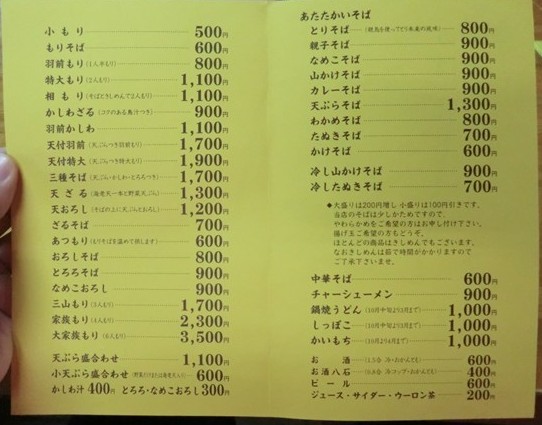 小もり 500円
もりそば 600円
羽前もり(1人半もり) 800円
特大もり(2人もり) 1,100円
相もり(そばときしめんで2人もり) 1,100円
かしわざる(コクのある鳥汁つき) 900円
羽前かしわ 1,100円
天付羽前(天ぷらつき羽前もり) 1,700円
天付特大(天ぷらつき特大もり) 1,900円
三種そば(天ぷら・かしわ・とろろつき) 1,700円
天ざる(海老天一本と野菜天ぷら) 1,300円
天おろし(そばの上に天ぷらとおろし) 1,200円
ざるそば 700円
あつもり(もりそばを温めて供します) 600円
おろしそば 800円
とろろそば 900円
なめこおろし 900円
三山もり(3人もり) 1,700円
家族もり(4人もり) 2,300円
大家族もり(6人もり) 3,500円
天ぷら盛合わせ 1,100円
小天ぷら盛合わせ 600円
かしわ汁 400円 とろろ・なめこおろし 300円
あたたかいそば
とりそば 800円
親子そば 900円
なめこそば 900円
山かけそば 900円
カレーそば 900円
天ぷらそば 1,300円
わかめそば 800円
たぬきそば 700円
かけそば 600円
冷し山かけそば 900円
冷したぬきそば 700円
●大盛りは200円増し 小盛りは100円引きです。
当店のそばは少しかためですので、
やわらかめをご希望の方はお申し付け下さい。
揚げ玉ご希望の方もどうぞ。
ほとんどの商品はきしめんでもございます。
なおきしめんは茹で時間がかかりますので
ご了承下さいませ。
中華そば 600円
チャーシューメン 900円
鍋焼うどん(10月中旬より3月まで) 1,000円
しっぽこ(10月中旬より3月まで) 1,000円
かいもち(10月より4月まで) 1,000円
お酒 600円
お酒八石 400円
ビール 600円
ジュース・サイダー・ウーロン茶 200円